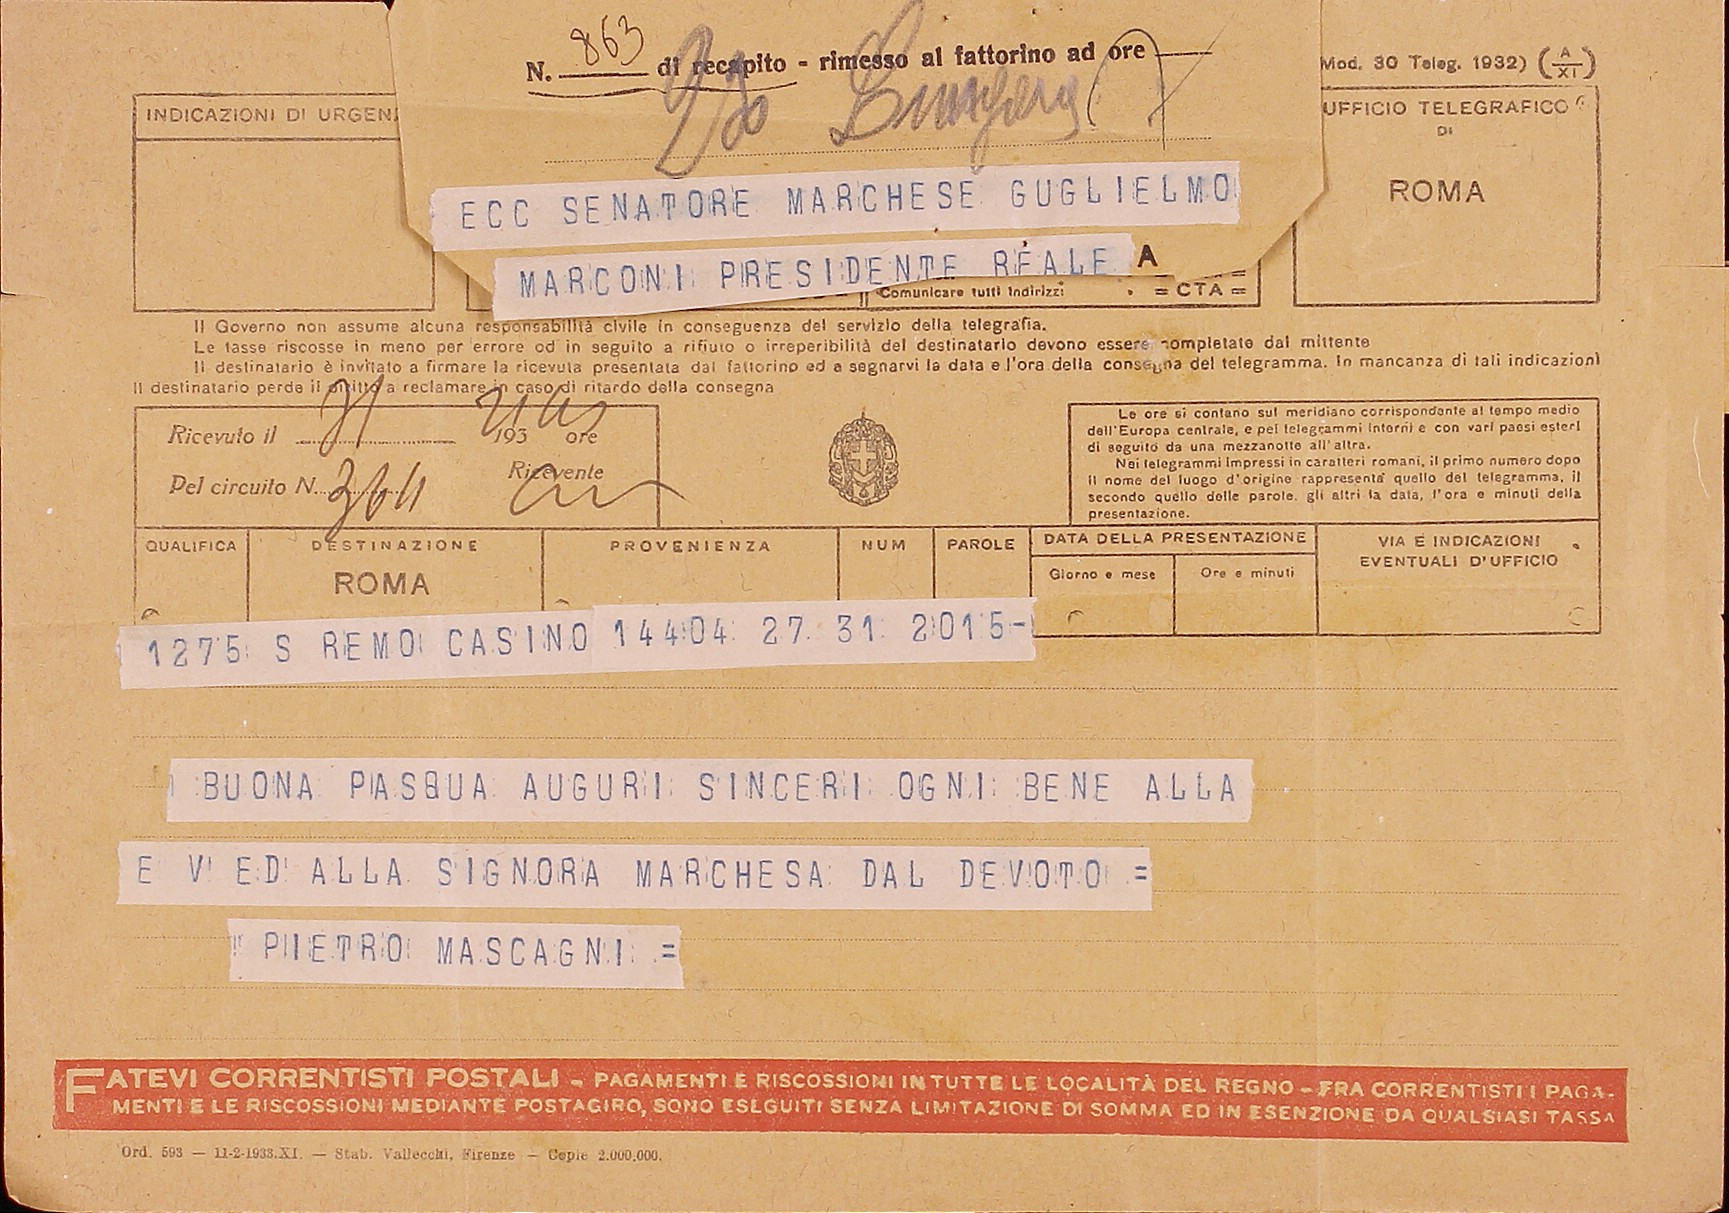 N. 863 di recapito - rimesso al fattorino ad ore
Mod. 30 Teleg. 1932) (A/XI)
INDICAZIONI DI URGEN
UFFICIO TELEGRAFICO
DI
ROMA
ECC SENATORE MARCHESE GUGLIELMO
MARCONI PRESIDENTE REALE A
Comunicare tutti indirizzi = CTA =
Il Governo non assume alcuna responsabilità civile in conseguenza del servizio della telegrafia.
Le tasse riscosse in meno per errore od in seguito a rifiuto o irreperibilità del destinatario devono essere completate dal mittente
Il destinatario è invitato a firmare la ricevuta presentata dal fattorino ed a segnarvi la data e l'ora della consegna del telegramma. In mancanza di tali indicazioni
il destinatario perde il diritto a reclamare in caso di ritardo della consegna
Ricevuto il 31 193 ore
Pel circuito N. Ricevente
Le ore si contano sul meridiano corrispondente al tempo medio
dell'Europa centrale, e pei telegrammi interni e con vari paesi esteri
di seguito da una mezzanotte all'altra.
Nei telegrammi impressi in caratteri romani, il primo numero dopo
il nome del luogo d'origine rappresenta quello del telegramma, il
secondo quello delle parole, gli altri la data, l'ora e minuti della
presentazione.
QUALIFICA DESTINAZIONE PROVENIENZA NUM PAROLE DATA DELLA PRESENTAZIONE VIA E INDICAZIONI
EVENTUALI D'UFFICIO
ROMA Giorno e mese Ore e minuti
1275 S REMO CASINO 14404 27 31 2015-
BUONA PASQUA AUGURI SINCERI OGNI BENE ALLA
E V ED ALLA SIGNORA MARCHESA DAL DEVOTO =
PIETRO MASCAGNI =
FATEVI CORRENTISTI POSTALI - PAGAMENTI E RISCOSSIONI IN TUTTE LE LOCALITÀ DEL REGNO - FRA CORRENTISTI I PAGA-
MENTI E LE RISCOSSIONI MEDIANTE POSTAGIRO, SONO ESEGUITI SENZA LIMITAZIONE DI SOMMA ED IN ESENZIONE DA QUALSIASI TASSA
Ord. 593 — 11-2-1933.XI. — Stab. Vallecchi, Firenze — Copie 2.000.000.